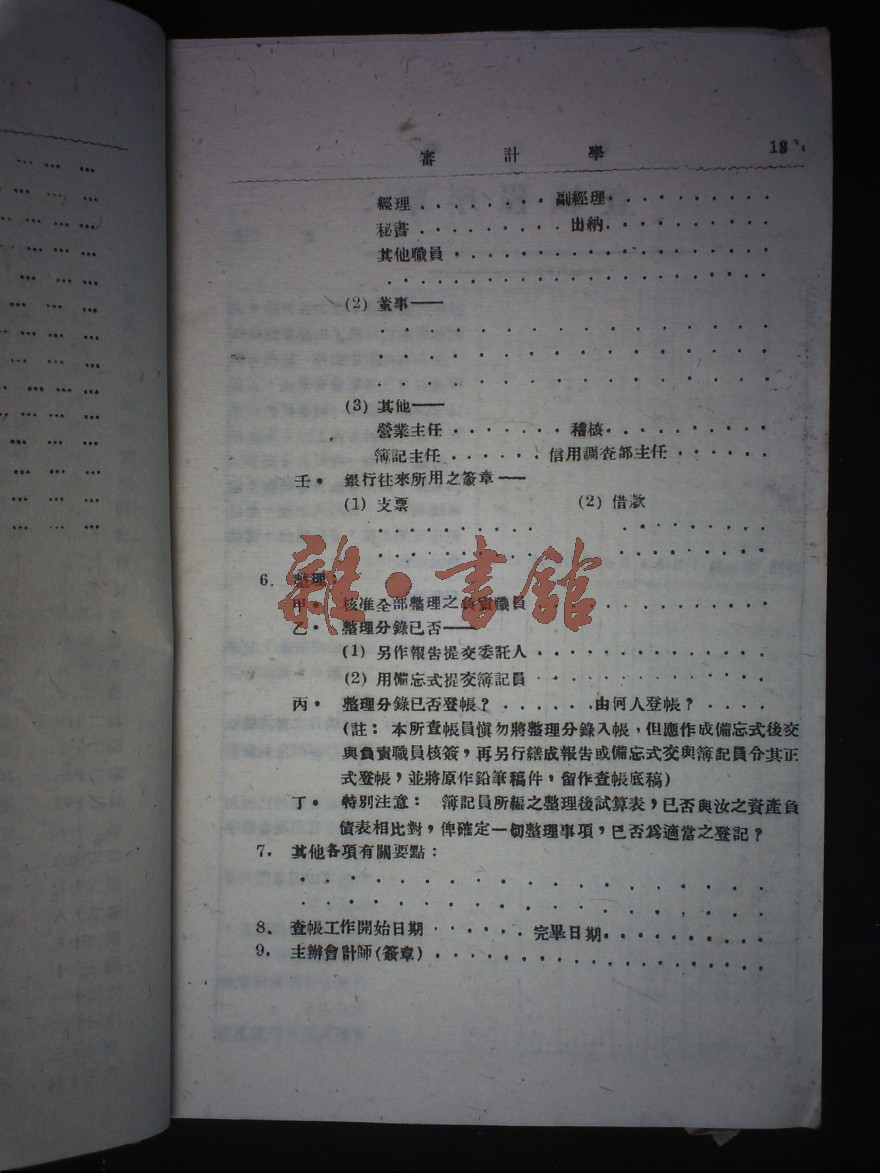 審 計 學
經理 . . . . . . . . . 副經理 . . . . . . . . . .
秘書 . . . . . . . . . 出納 . . . . . . . . . . .
其他職員 . . . . . . . . . . . . . . . . . . . .
. . . . . . . . . . . . . . . . . . . . . . . .
(2) 董事——
. . . . . . . . . . . . . . . . . .
. . . . . . . . . . . . . . . . . .
. . . . . . . . . . . . . . . . . .
(3) 其他——
營業主任 . . . . . . . 稽核 . . . . . . . . . .
簿記主任 . . . . . . 信用調查部主任 . . . . . .
壬. 銀行往來所用之簽章——
(1) 支票 (2) 借款
. . . . . . . . . . . . . . . . .
. . . . . . . . . . . . . . . . .
雜·書館
6. 整理:
甲. 核准全部整理之負責職員 . . . . . . . . . . . . .
乙. 整理分錄已否——
(1) 另作報告提交委託人 . . . . . . . . . . . . .
(2) 用備忘式提交簿記員 . . . . . . . . . . . . .
丙. 整理分錄已否登帳? . . . . . . 由何人登帳? . . . .
(註: 本所查帳員慎勿將整理分錄入帳,但應作成備忘式後交
與負責職員核簽,再另行繕成報告或備忘式交與簿記員令其正
式登帳,並將原作鉛筆稿件,留作查帳底稿)
丁. 特別注意: 簿記員所編之整理後試算表,已否與汝之資產負
債表相比對,俾確定一切整理事項,已否爲適當之登記?
7. 其他各項有關要點:
. . . . . . . . . . . . . . . . . . . . . .
. . . . . . . . . . . . . . . . . . . . . .
8. 查帳工作開始日期 . . . . . . 完畢日期 . . . . . . . . . .
9. 主辦會計師(簽章) . . . . . . . . . . . . . . . . . . .